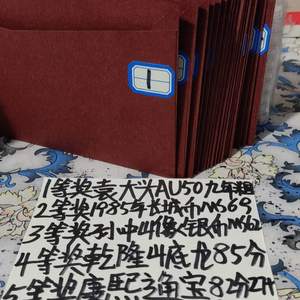 1
1等奖袁大头AU50九年粗
2等奖1985年长城币MS69
3等奖孙中山像银币MS62
4等奖乾隆山底龙85分
5等奖康熙三角宝82分ZH